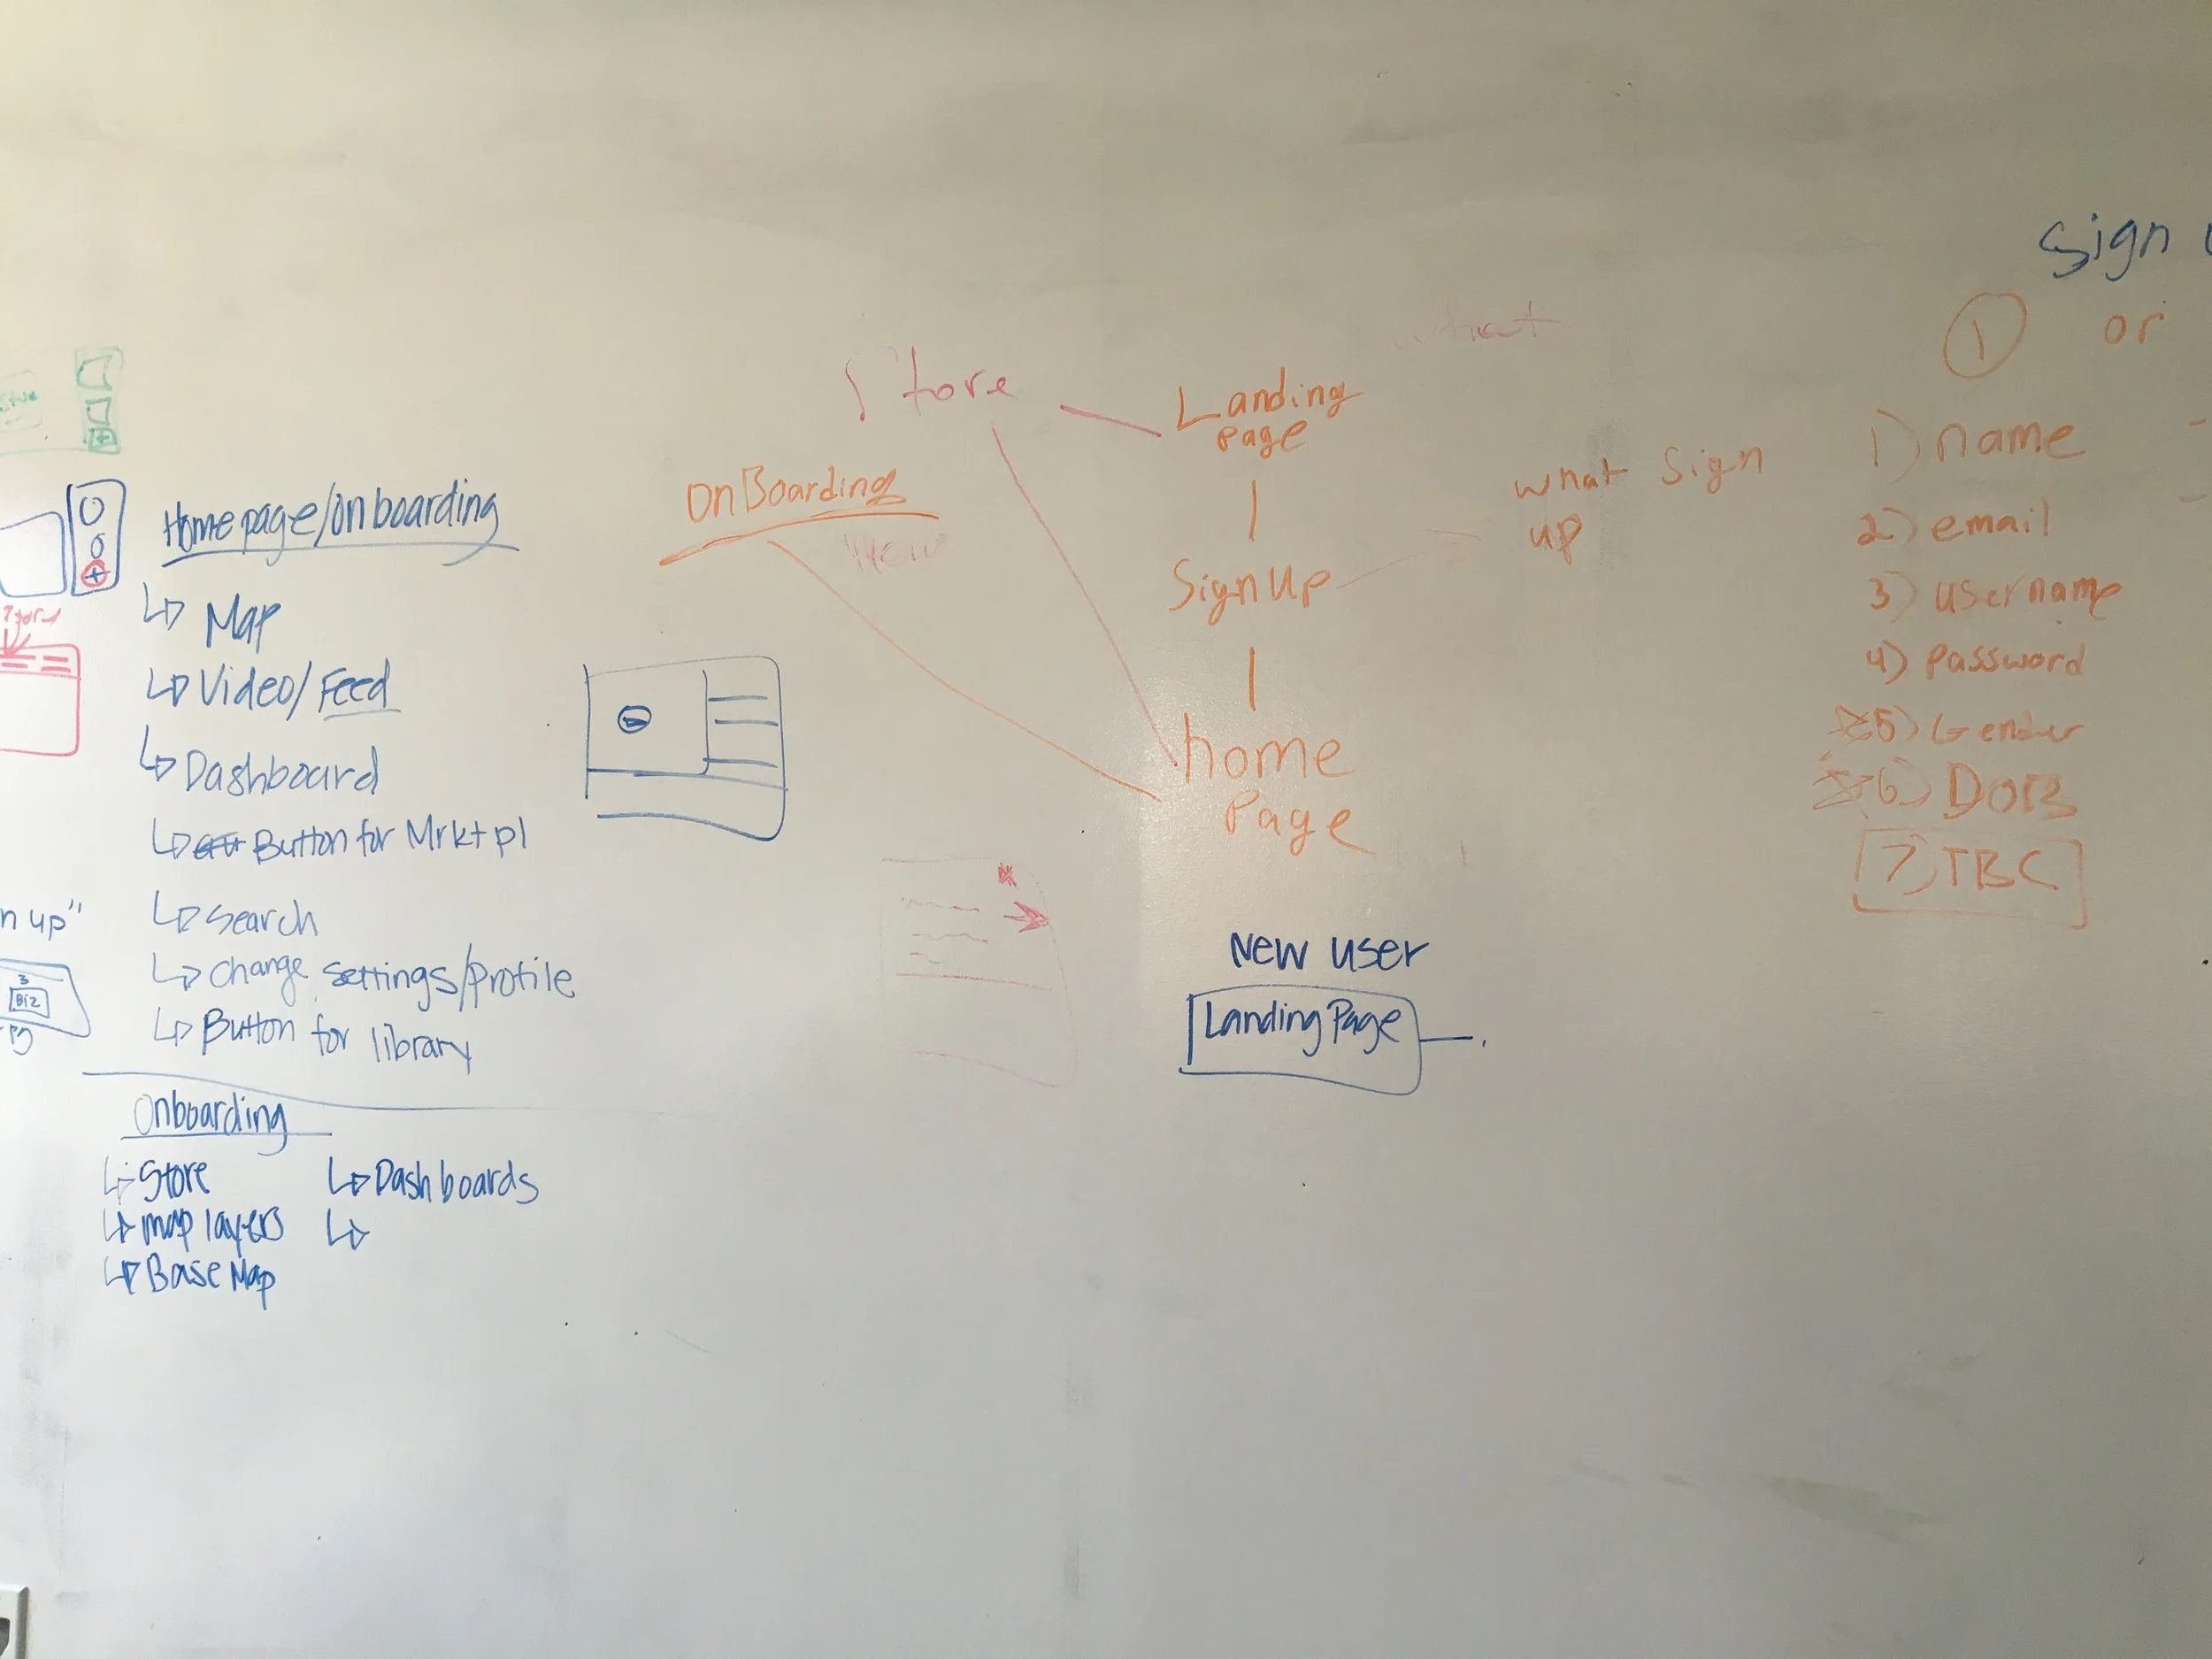 Homepage/Onboarding
Map
Video/Feed
Dashboard
Button for Mrktpl
Search
Change settings/Profile
Button for library
n up"
3
Biz
Pg
Onboarding
Store
map layers
Base Map
Dashboards
Store
OnBoarding
New
Landing
Page
Sign Up
home
Page
what sign
up
New User
Landing Page
Sign
1
or
1) name
2) email
3) username
4) Password
5) Gender
6) DOB
7) TBC